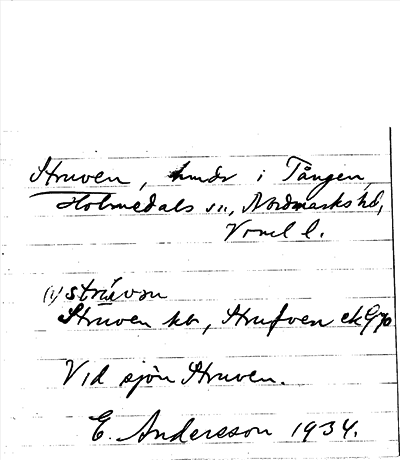 Struven, hmdr i Tången,
Holmedals sn, Nordmarks hd,
Vrml l.
(1) strúvən
Struven kb, Strufven ek G70
Vid sjön Struven.
E. Andersson 1934.